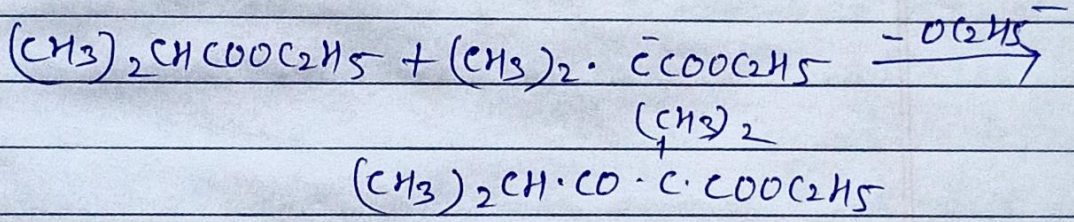 (CH3)2CHCOOC2H5 + (CH3)2. C̄COOC2H5 -OC2H5⁻ →
(CH3)2
(CH3)2CH.CO.C.COOC2H5